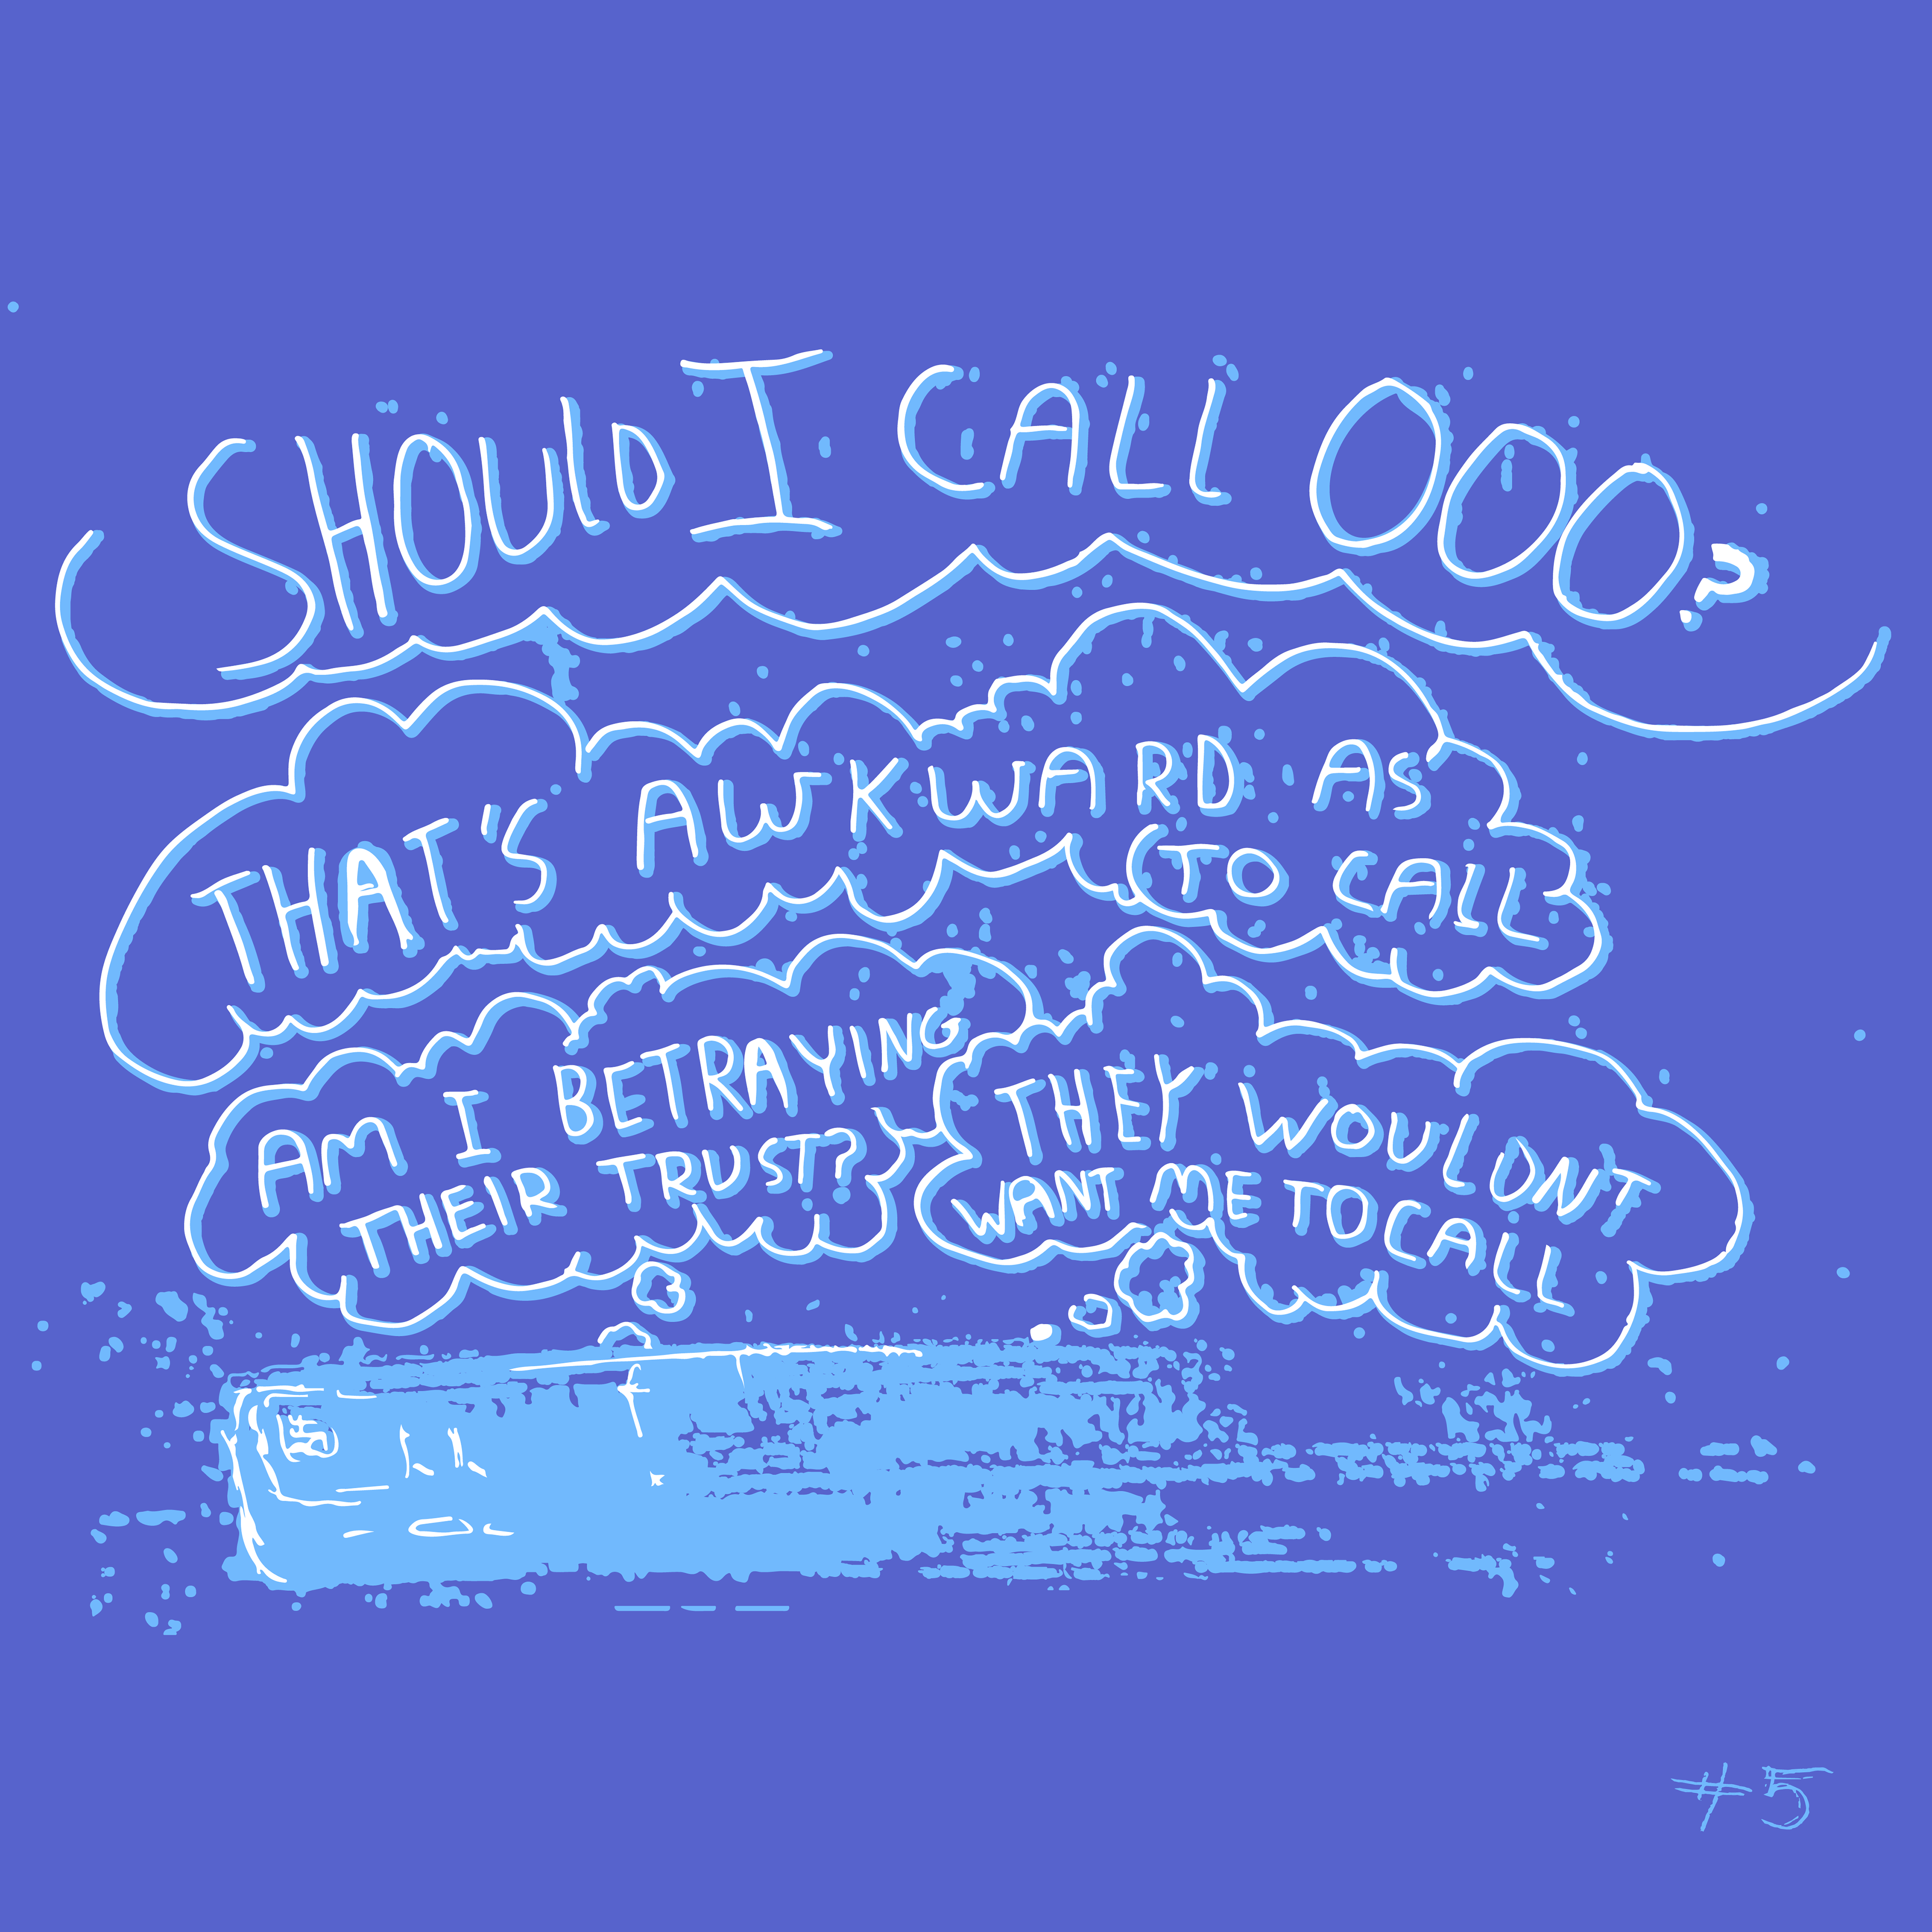 SHOULD I CALL 000?
THAT'S AWKWARD AS
TO CALL
AM I BETRAYING
THEIR TRUST?
THEY WOULDN'T
WANT ME TO CALL
#5